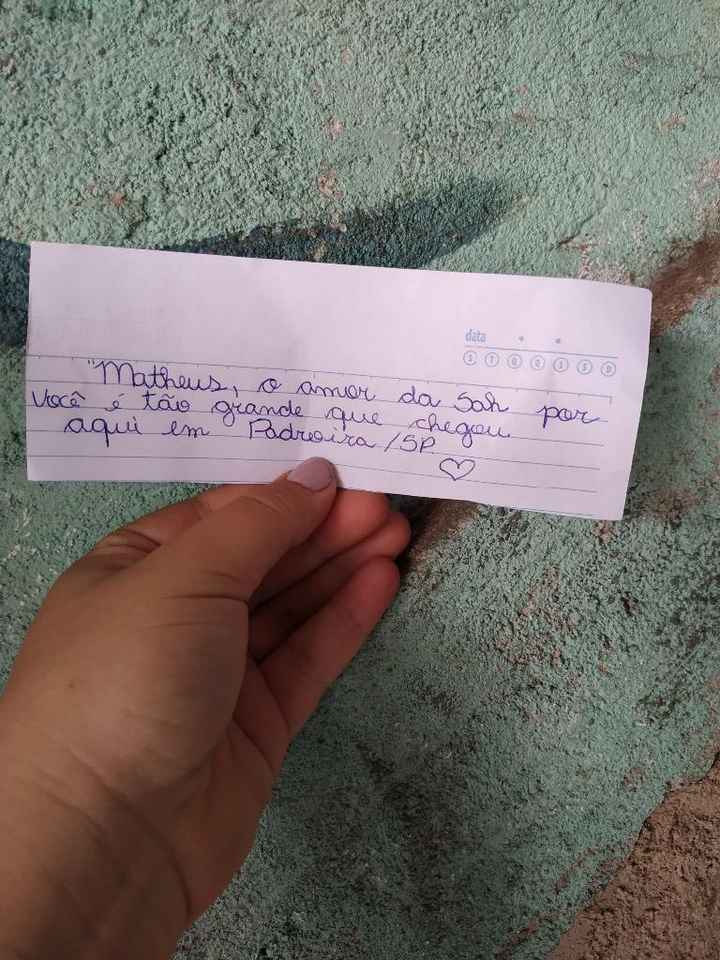 data
S T Q Q S S D
"Matheus, o amor da Sah por
você é tão grande que chegou
aqui em Padroeira/SP